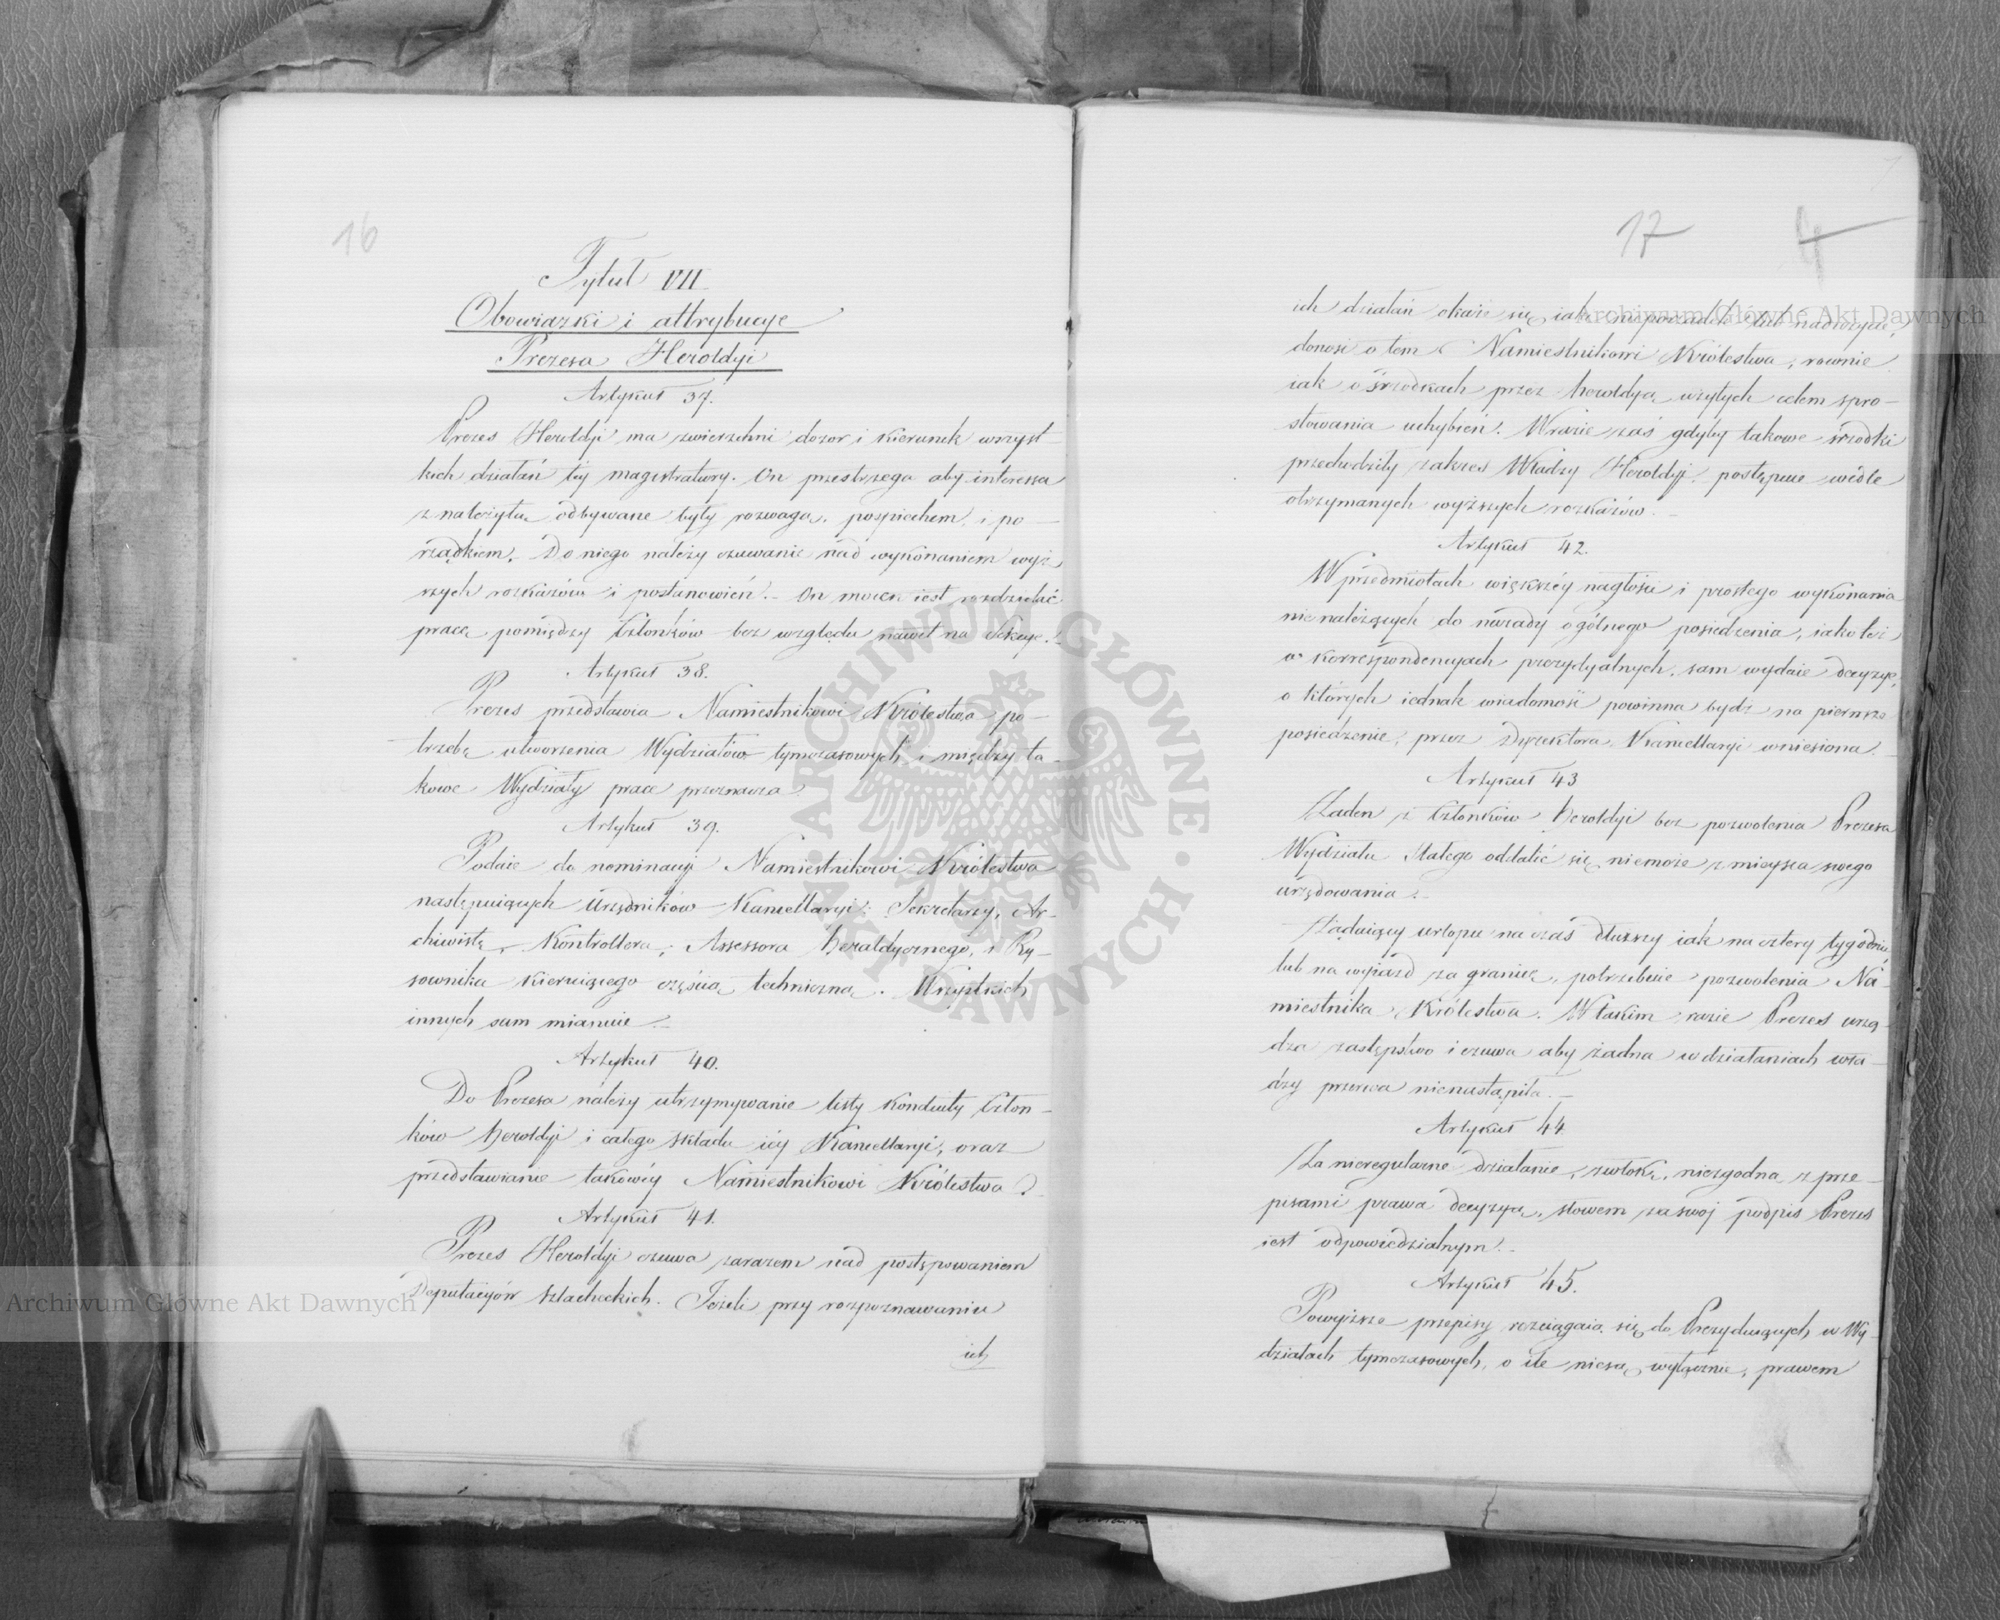 16
Tytuł VII.
Obowiązki i attrybucye
Prezesa Heroldyi
Artykuł 37.
Prezes Heroldyi ma zwierzchni dozor i kierunek wszyst-
kich działań téy magistratury. On przestrzega aby interessa
z należytą odbywane były rozwagą, pospiechem, i po-
rządkiem. Do niego należy czuwanie nad wykonaniem wyż-
szych rozkazów i postanowień. On mocen iest rozdzielać
pracę pomiędzy Członków bez względu nawet na Sekcye.
Artykuł 38.
Prezes przedstawia Namiestnikowi Królestwa po-
trzebę utworzenia Wydziałów tymczasowych i między ta-
kowe Wydziały prace przeznacza.
Artykuł 39.
Podaie do nominacyi Namiestnikowi Królestwa
następuiących Urzędników Kancellaryi: Sekretarzy, Ar-
chiwistę, Kontrollera, Assessora heraldycznego, i Ry-
sownika kieruiącego częścią techniczną. Wszystkich
innych sam mianuie.
Artykuł 40.
Do Prezesa należy utrzymywanie listy konduity Człon-
ków heroldyi i całego składu iéy Kancellaryi, oraz
przedstawianie takowéy Namiestnikowi Królestwa.
Artykuł 41.
Prezes Heroldyi czuwa zarazem nad postępowaniem
Deputacyów szlacheckich. Jeżeli przy rozpoznawaniu
ich
17
4
ich działań okaże się iaki nieporządek lub nadużycie,
donosi o tem Namiestnikowi Królestwa, rownie
iak o śrzodkach przez heroldyą użytych celem spro-
stowania uchybień. W razie zaś gdyby takowe śrzodki
przechodziły zakres Władzy Heroldyi, postępuie wedle
otrzymanych wyższych rozkazów.
Artykuł 42.
W przedmiotach większéy nagłości i prostego wykonania
nienależących do narady ogólnego posiedzenia, iako też
w korrespondencyach prezydyalnych, sam wydaie decyzye,
o których iednak wiadomość powinna bydź na pierwsze
posiedzenie, przez Dyrektora Kancellaryi wniesiona.
Artykuł 43
Żaden z Członków heroldyi bez pozwolenia Prezesa
Wydziału stałego oddalić się niemoże z mieysca swego
urzędowania.
Żądaiący urlopu na czas dłuższy iak na cztery tygodnie,
lub na wyiazd za granicę, potrzebuie pozwolenia Na-
miestnika Królestwa. W takim razie Prezes urzą-
dza zastępstwo i czuwa aby żadna w działaniach wła-
dzy przerwa nienastąpiła.
Artykuł 44.
Za nieregularne działanie, zwłokę, niezgodną z prze-
pisami prawa decyzyą, słowem za swoj podpis Prezes
iest odpowiedzialnym.
Artykuł 45.
Powyższe przepisy rozciągaią się do Prezyduiących w Wy-
działach tymczasowych, o ile niesą wyłącznie, prawem
Archiwum Główne Akt Dawnych
Archiwum Główne Akt Dawnych
ARCHIWUM GŁÓWNE AKT DAWNYCH